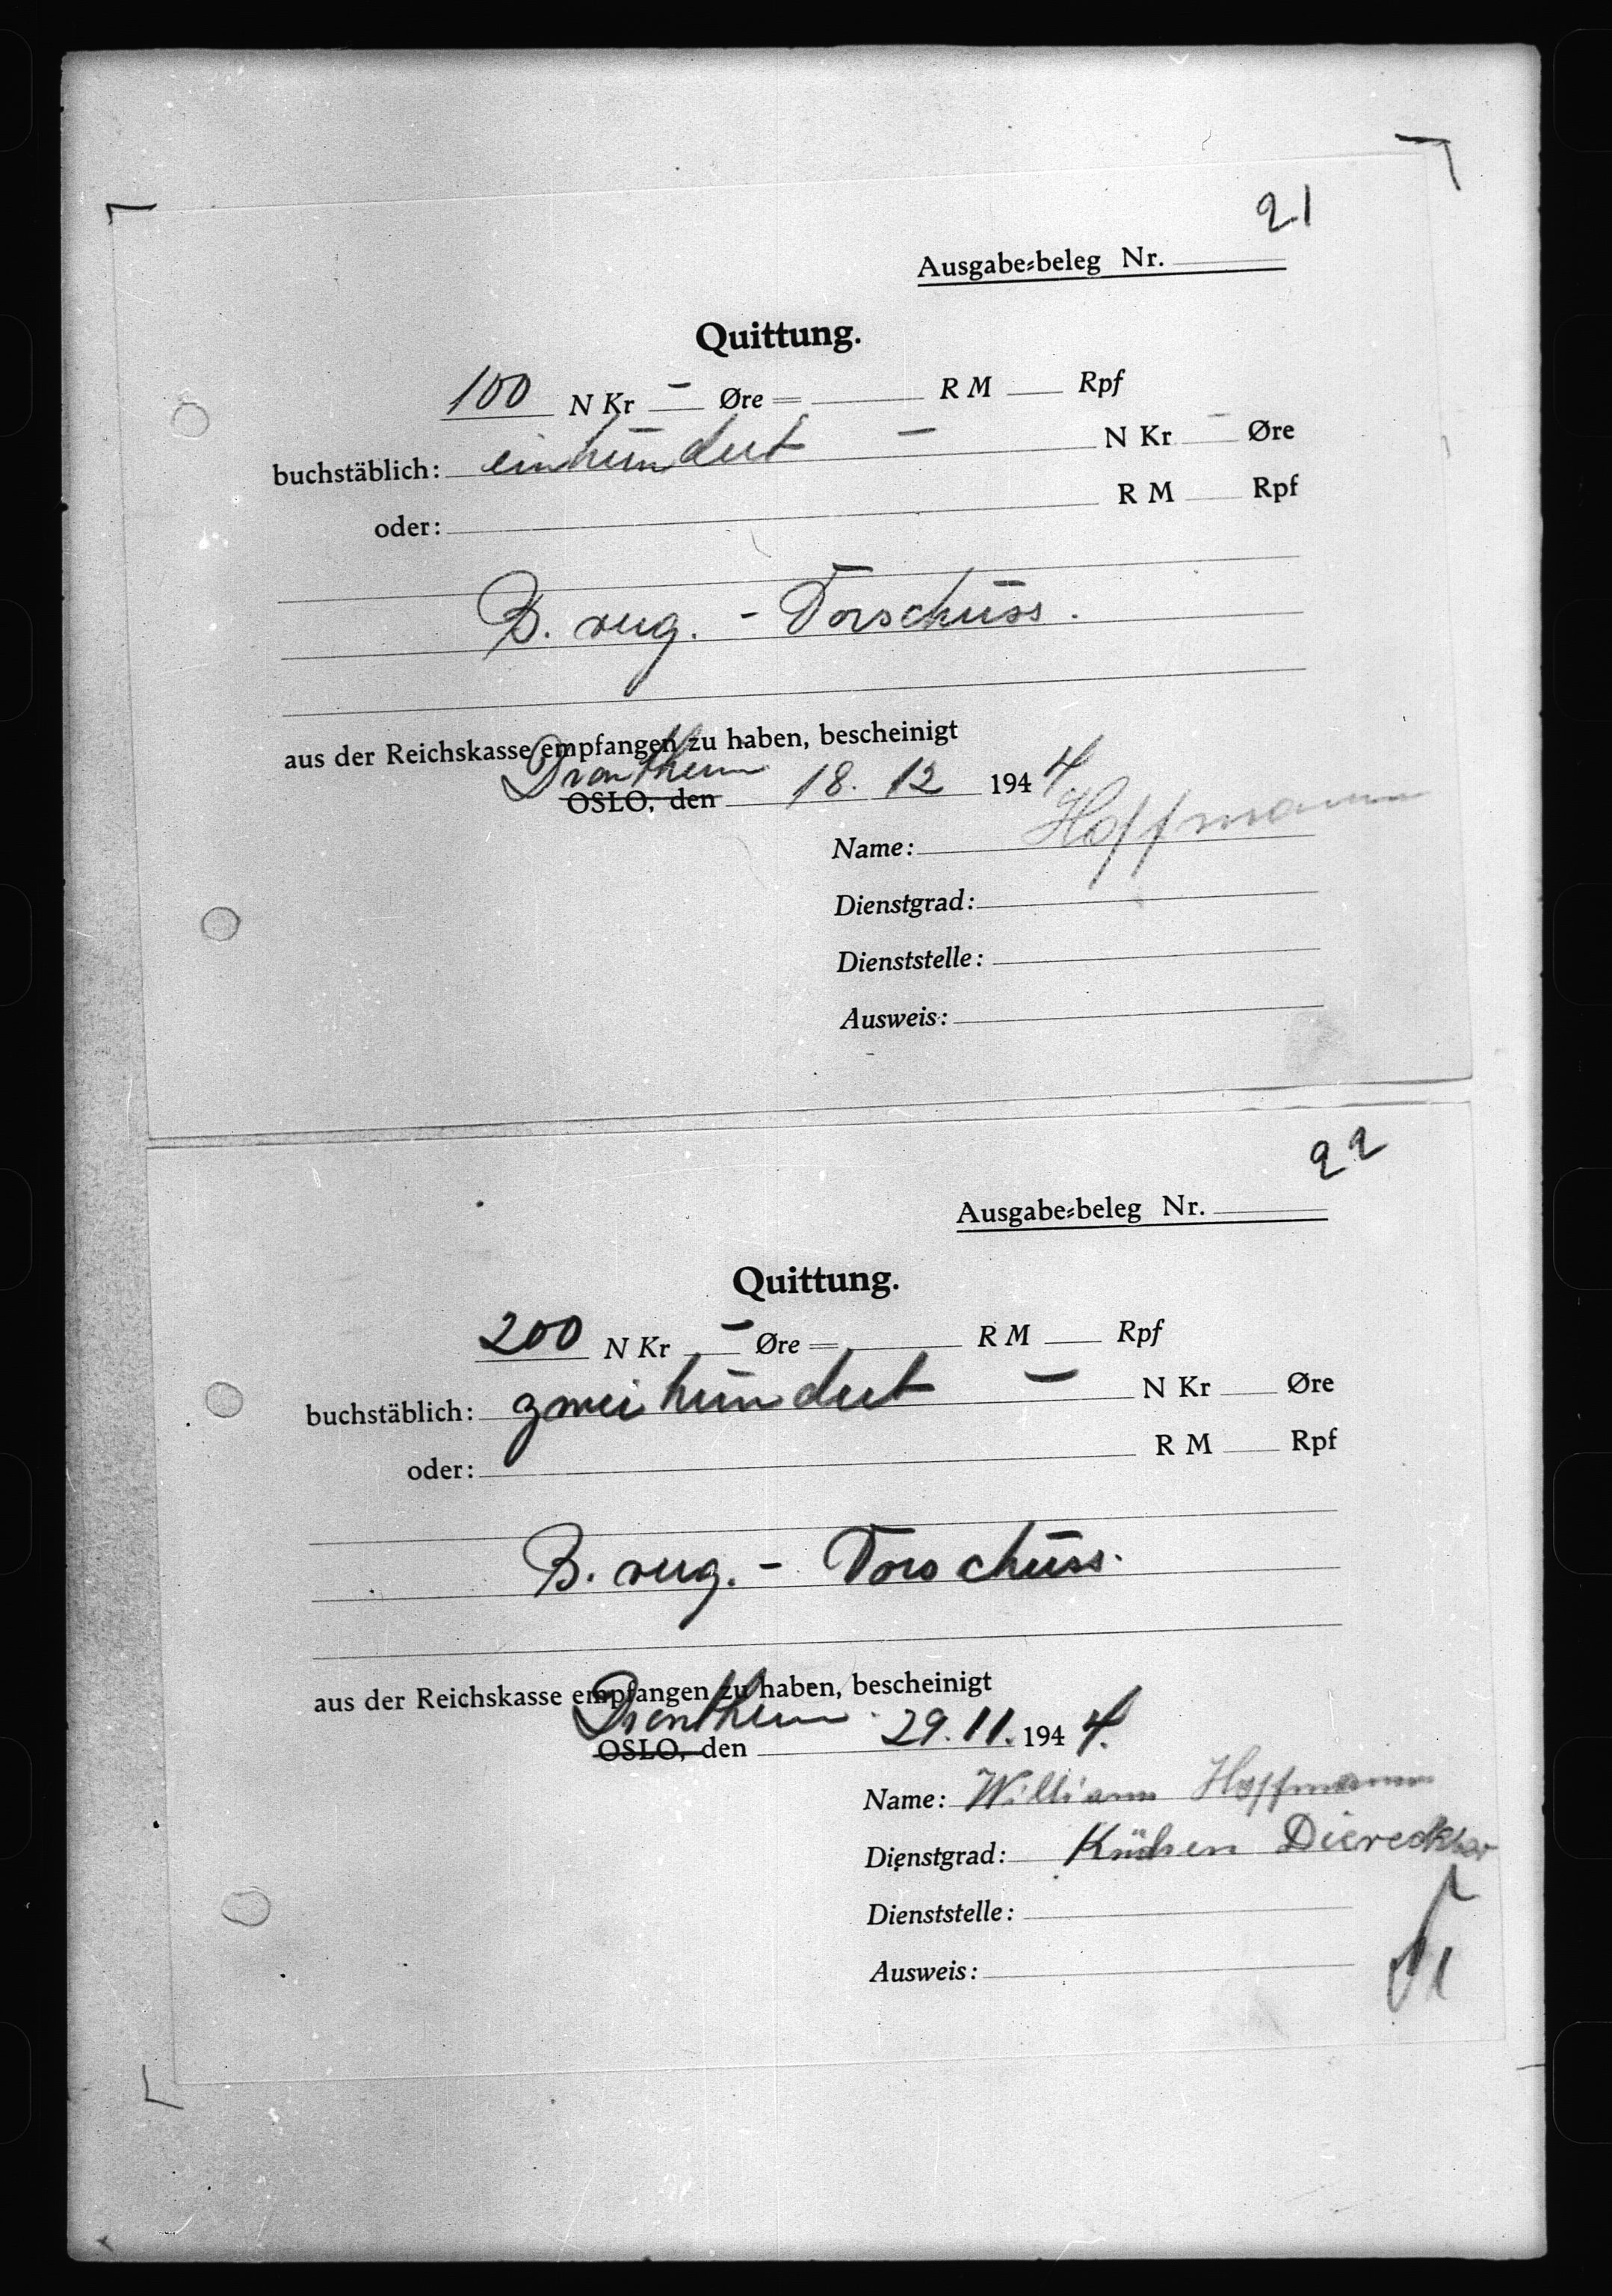 21
Ausgabe=beleg Nr.
Quittung.
100 N Kr – Øre = R M Rpf
buchstäblich: einhundert – N Kr – Øre
oder: R M Rpf
B. rug. - Vorschuss.
aus der Reichskasse empfangen zu haben, bescheinigt
Drontheim
OSLO, den 18. 12 1944
Name: Hoffmann
Dienstgrad:
Dienststelle:
Ausweis:
22
Ausgabe=beleg Nr.
Quittung.
200 N Kr – Øre = R M Rpf
buchstäblich: zweihundert – N Kr Øre
oder: R M Rpf
B. rug. - Vorschuss.
aus der Reichskasse empfangen zu haben, bescheinigt
Drontheim
OSLO, den 29. 11. 1944.
Name: William Hoffmann
Dienstgrad: Küchen Diereckter
Dienststelle:
Ausweis: